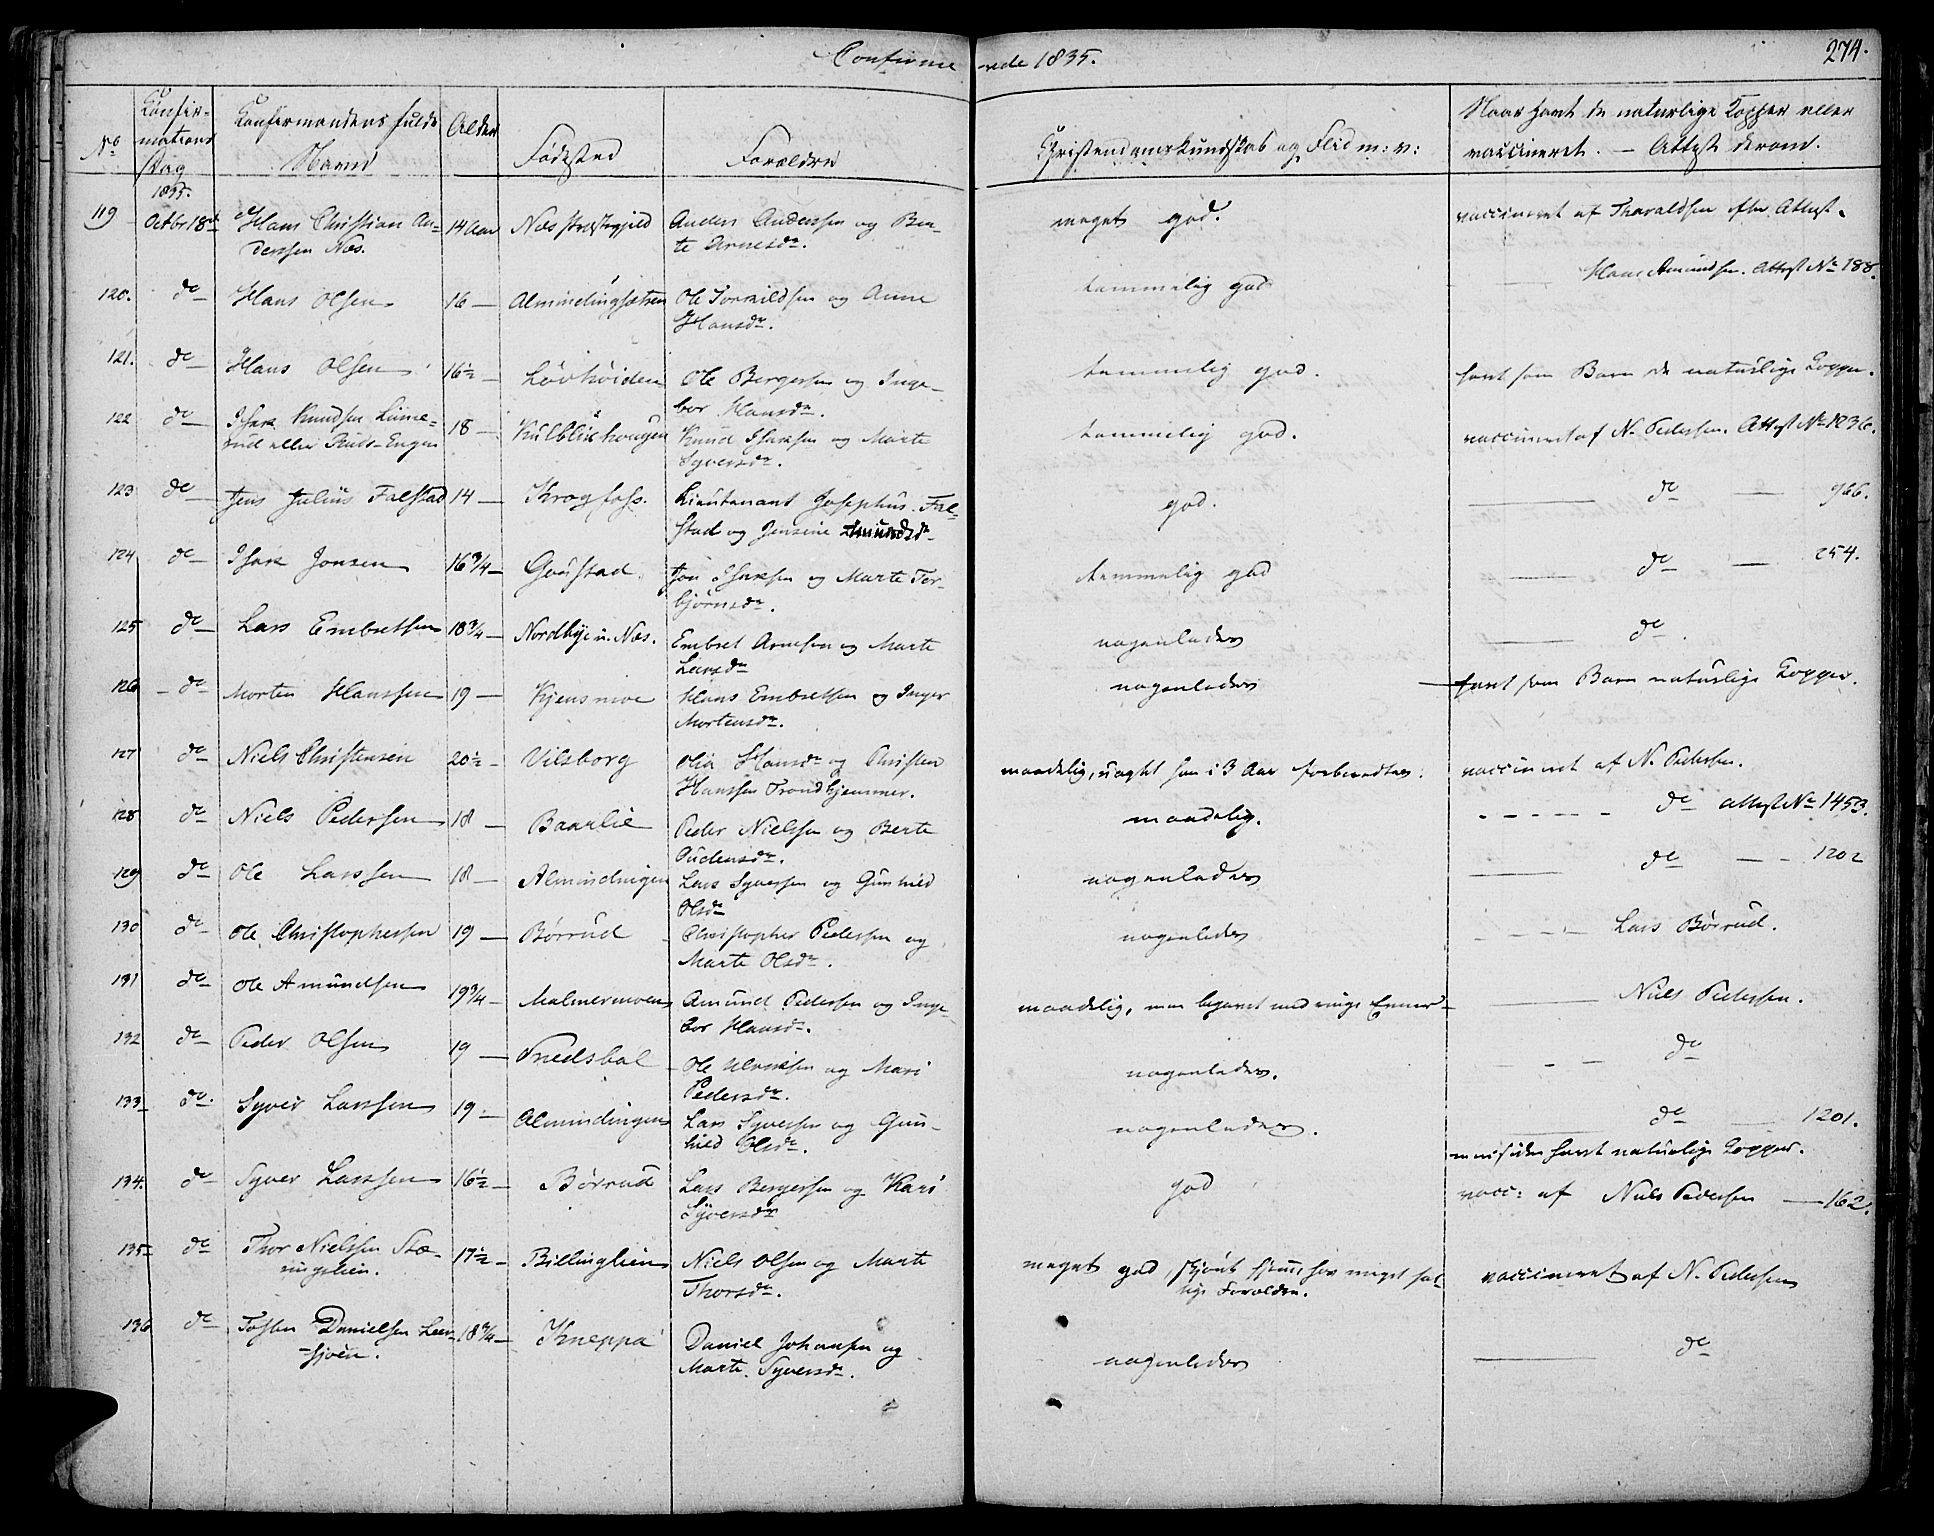 Confirme rede 1835. 274.
No Konfirmations Dag Konfirmandens fulde Navn Alder Fødested Forældre Christendomskundskab og Flid m: v: Naar havt de naturlige Kopper eller vaccineret. — Attest derom.
1835.
119 Octbr 18de Hans Christian An- 14 Aar Næs Præstegjeld Anders Anderssen og Ber- meget god. vaccineret af Tharaldsen efter Attest.
derssen Næs. te Arnesdr.
120. do Hans Olsen 16 — Almindingsætren Ole Torkildsen og Anne temmelig god Hans Amundsen. Attest No 188.
Hansdr.
121. do Hans Olsen 16½ — Løvhöiden Ole Bergersen og Inge- temmelig god. havt som Barn de naturlige Kopper.
bor Hansdr.
122 do Isak Knudsen Lime- 18 — Kulblikhougen Knud Isaksen og Marte temmelig god. vaccineret af N. Pedersen. Attest No 1236.
rud eller Ruds-Engen Syversdr.
123 do Jens Julius Falstad 14 — Krogfoss. Lieutenant Josephus Fal- god. do — 966.
stad og Jensine Amundsdr
124 do Isak Jonsen 16¾ — Goustad Jon Isaksen og Marte Tor- temmelig god do — 254.
björnsdr.
125 do Lars Embretsen 18¾ — Nordbye i. Næs. Embret Arnesen og Marte nogenledes do.
Larsdr
126 — do Morten Hanssen 19 — Kjensmoe Hans Embretsen og Inger nogenledes havt som Barn naturlige Kopper.
Mortensdr.
127 do Niels Christensen 20½ — Vilsborg Olia Hansdr og Christen maadelig, uagtet han i 3 Aar forberedtes. vaccineret af N. Pedersen.
Hanssen Trondhjemmer.
128 do Niels Pedersen 18 — Baarlie Peder Nielssen og Berte maadelig. do Attest No 1453.
Oudensdr.
129 do Ole Larssen 18 — Almindingen Lars Syversen og Gunhild nogenledes do — 1202
Olsdr
130 do Ole Christophersen 19 — Børrud Christopher Pedersen og nogenledes Lars Børrud.
Marte Olsdr.
131 do Ole Amundsen 19¾ — Malmermoen Amund Pedersen og Inge- maadelig, men begavet med ringe Evner — Niels Pedersen.
bor Hansdr.
132 do Peder Olsen 19 — Ole Ulriksen og Mari nogenledes. do
Pedersdr.
133 do. Syver Larssen 19 — Almindingen Lars Syversen og Gun- nogenledes. do — 1201.
hild Olsdr.
havt naturlige Kopper.
134. do Syver Larssen 16½ — Børrud Lars Bergersen og Kari god vacc: af Niels Pedersen — 162.
Syversdr
135 do Thor Nielssen Stæ- 17½ — Billinglien Niels Olsen og Marte meget god, skjönt han har meget fat- vaccineret af N. Pedersen
ringslien. Thorsdr. tige Forældre.
136 do Tosten Danielsen Leer- 18¾ — Kneppa Daniel Johansen og nogenledes do
sjoen. Marte Syversdr.